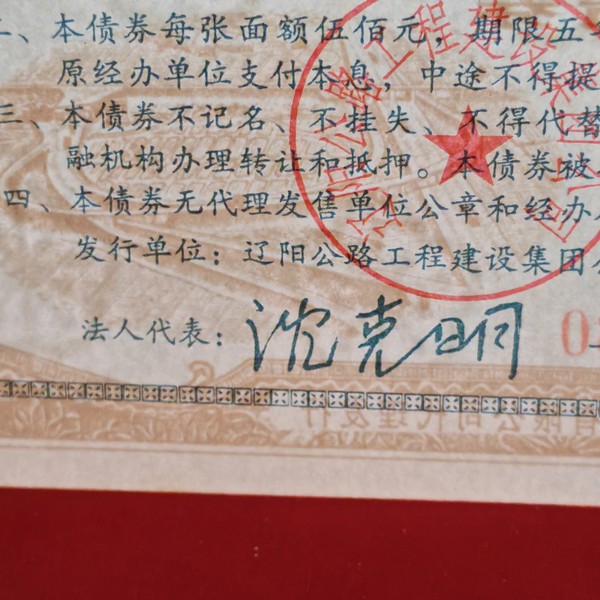 二、本债券每张面额伍佰元，期限五年
原经办单位支付本息，中途不得提
三、本债券不记名、不挂失、不得代替
融机构办理转让和抵押。本债券被
四、本债券无代理发售单位公章和经办
发行单位：辽阳公路工程建设集团公
法人代表：沈克明
有限公司代理发行